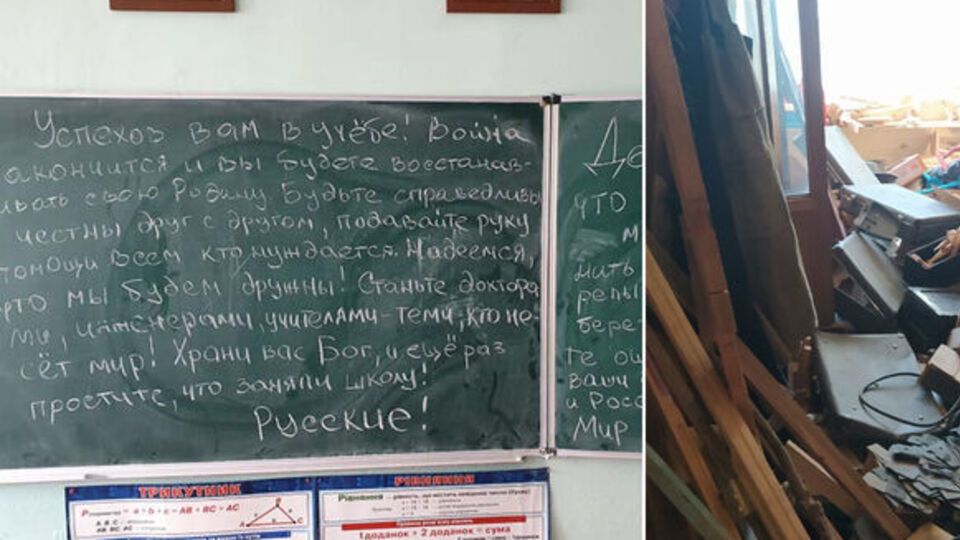 Успехов вам в учёбе! Война
акончится и вы будете восстанав-
ивать свою Родину Будьте справедливы
честны друг с другом, подавайте руку
помощи всем кто нуждается. Надеемся,
что мы будем дружны! Станьте доктора
ми, инженерами, учителями-теми, кто не-
сёт мир! Храни вас Бог, и ещё раз
простите, что заняли школу!
Русские!
Де
что
м
мить
репы
бере
те ош
ваши
и Росс
Мир
ТРИКУТНИК
P = a + b + c = AB + BC + AC
B
A
C
РІВНЯННЯ
Рівняння — рівність, що містить невідоме число (букву)
1 доданок + 2 доданок = сума